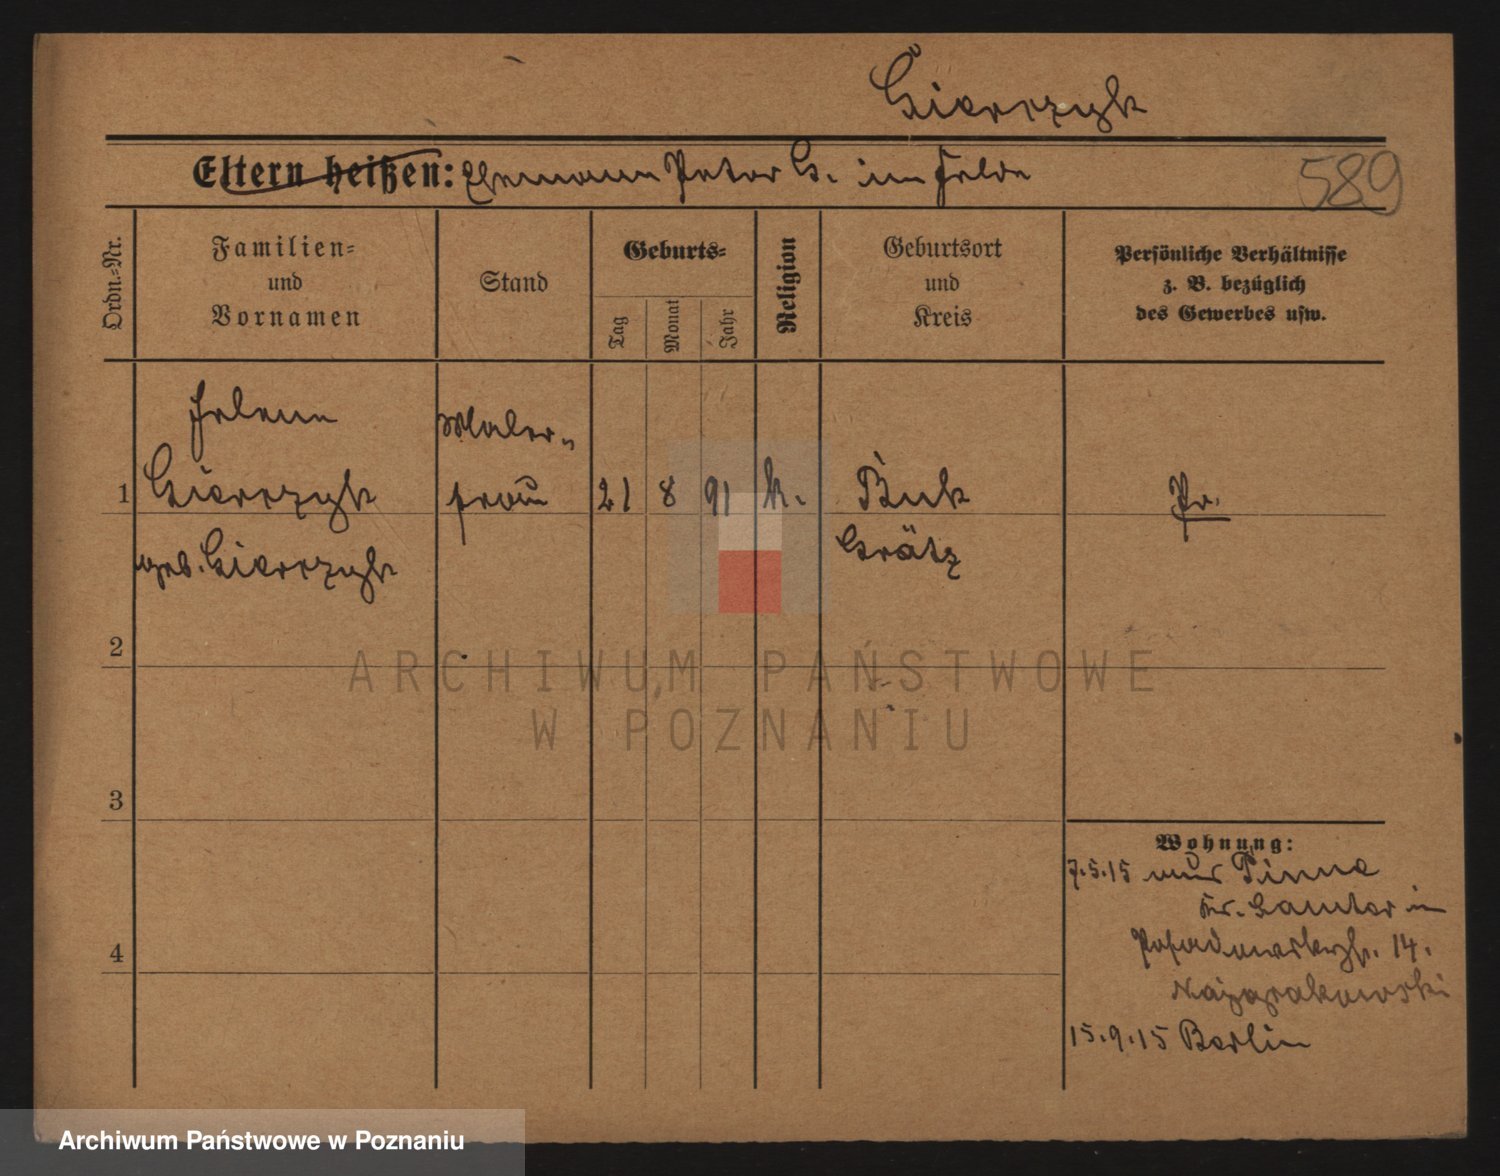 Gierczyk
Eltern heißen: Ehemann Peter G. im Felde
589
Ordn.=Nr.
Familien=
und
Vornamen
Stand
Geburts=
Tag
Monat
Jahr
Religion
Geburtsort
und
Kreis
Persönliche Verhältnisse
z. B. bezüglich
des Gewerbes usw.
Helene
Maler-
1 Gierczyk frau 21 8 91 k. Buk Pr.
geb. Gierczyk Grätz
2
ARCHIWUM PAŃSTWOWE
W POZNANIU
3
Wohnung:
7.5.15 aus Pinne
Kr. Samter in
14.
4
15.9.15 Berlin
Archiwum Państwowe w Poznaniu